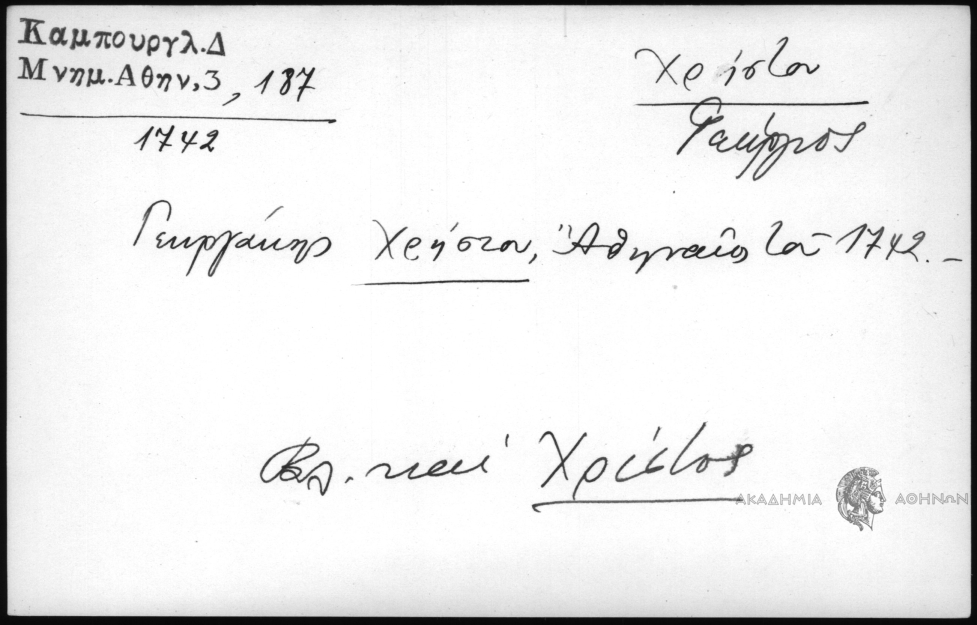 Καμπουργλ.Δ
Μνημ.Αθην,3, 187
1742
Χρήστου
Γεώργιος
Γεωργάκης Χρήστου, Ἀθηναῖος τοῦ 1742.–
Βλ. καί Χρίστος
ΑΚΑΔΗΜΙΑ ΑΘΗΝΩΝ